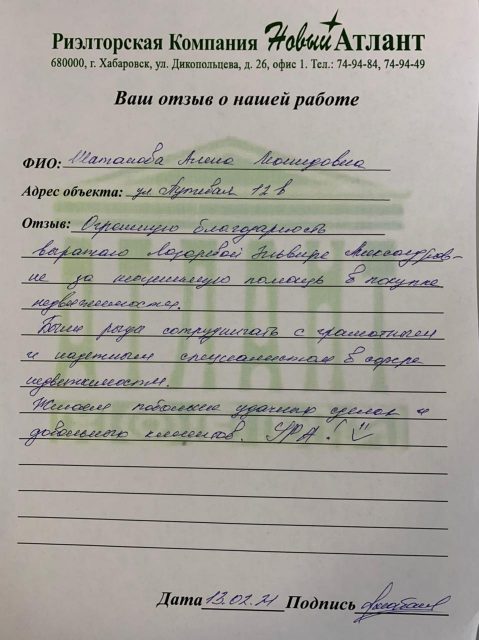 Риэлторская Компания Новый Атлант
680000, г. Хабаровск, ул. Дикопольцева, д. 26, офис 1. Тел.: 74-94-84, 74-94-49
Ваш отзыв о нашей работе
ФИО: Алена Леонидовна
Адрес объекта: ул Путевая 12 в
Отзыв: Огромную благодарность
выражаю Лазаревой Эльвире Александров-
не за неоценимую помощь в покупке
недвижимости.
Были рады сотрудничать с грамотным
и надежным специалистом в сфере
недвижимости.
Желаем побольше удачных сделок и
довольных клиентов. УРА!
Дата 13.02.21 Подпись